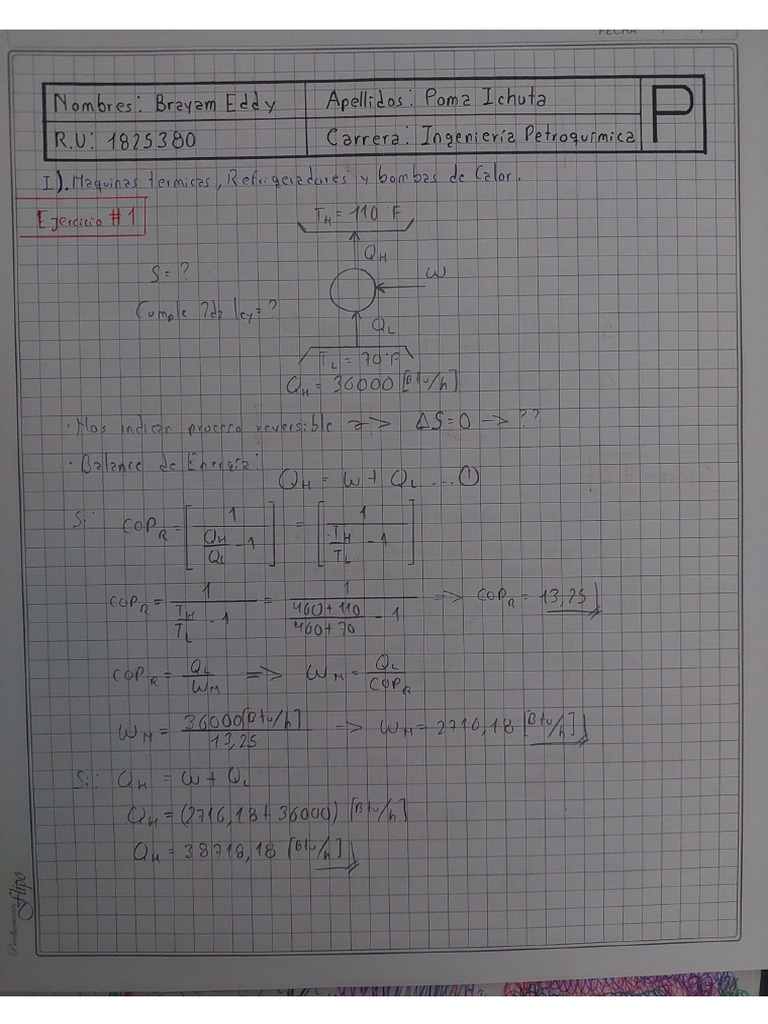 FECHA
Nombres: Brayam Eddy
Apellidos: Poma Ichuta
P
R.U: 1825380
Carrera: Ingenieria Petroquímica
I). Maquinas termicas, Refrigeradores y bombas de Calor.
Ejercicio #1
T_H = 110 °F
Q_H
S = ?
W
Cumple 2da ley = ?
Q_L
T_L = 70 °F
Q_H = 36000 [Btu/h]
· Nos indican proceso reversible => ΔS = 0 -> ??
· Balance de Energía:
Q_H = W + Q_L ... ①
Si: COP_R = [1 / (Q_H/Q_L - 1)] = [1 / (T_H/T_L - 1)]
COP_R = 1 / (T_H/T_L - 1) = 1 / ((460+110)/(460+70) - 1) => COP_R = 13,25
COP_R = Q_L/W_M => W_M = Q_L/COP_R
W_M = 36000 [Btu/h] / 13,25 => W_M = 2716,18 [Btu/h]
Si: Q_H = W + Q_L
Q_H = (2716,18 + 36000) [Btu/h]
Q_H = 38718,18 [Btu/h]
filpo